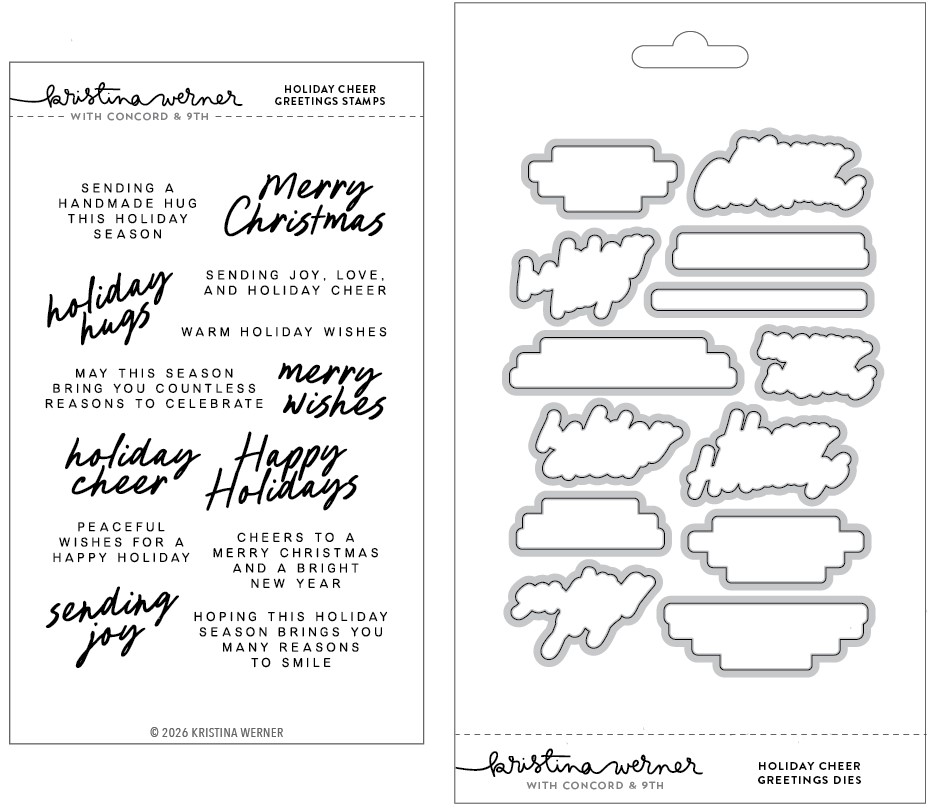 kristina werner
HOLIDAY CHEER
GREETINGS STAMPS
WITH CONCORD & 9TH
SENDING A
HANDMADE HUG
THIS HOLIDAY
SEASON
Merry
Christmas
holiday
hugs
SENDING JOY, LOVE,
AND HOLIDAY CHEER
WARM HOLIDAY WISHES
MAY THIS SEASON
BRING YOU COUNTLESS
REASONS TO CELEBRATE
merry
wishes
holiday
cheer
Happy
Holidays
PEACEFUL
WISHES FOR A
HAPPY HOLIDAY
CHEERS TO A
MERRY CHRISTMAS
AND A BRIGHT
NEW YEAR
sending
joy
HOPING THIS HOLIDAY
SEASON BRINGS YOU
MANY REASONS
TO SMILE
© 2026 KRISTINA WERNER
kristina werner
WITH CONCORD & 9TH
HOLIDAY CHEER
GREETINGS DIES